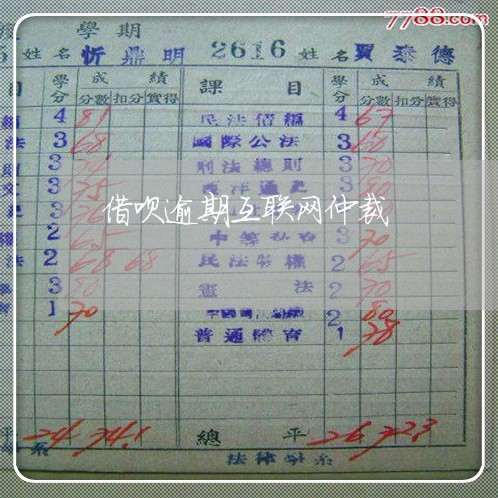 7788.com
學期
姓名 忻鼎明 2616 姓名 賈泰德
目 學分 成績 課目 學分 成績
分數 扣分 實得 分數 扣分 實得
4 81 民法債編 4 67
法 3 68 國際公法 3 60
3 刑法總則 3 70
3 75 西洋通史 3
借呗逾期互联网仲裁
2 65 3 70
法 2 68 68 民法物權 2 65
3 80 憲法 2 70
1 70 2 80
普通體育 1 78
平 24 74.1 總平 26 72.3
系 法律學系